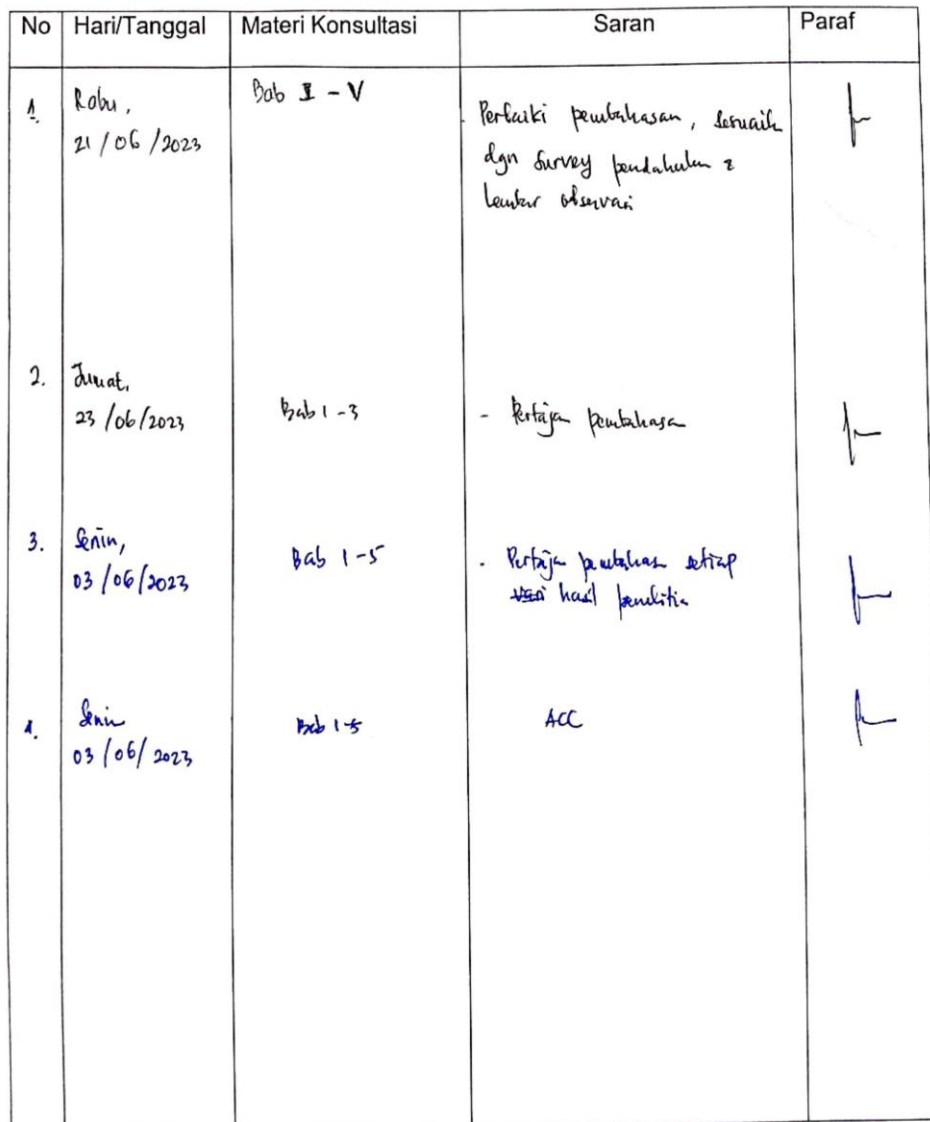 No Hari/Tanggal Materi Konsultasi Saran Paraf
1. Rabu, Bab I - V
21/06/2023
- Perbaiki pembahasan, sesuaik
dgn survey pendahuluan &
lembar observasi
2. Jumat,
23/06/2023 Bab 1-3 - Pertajam pembahasa
3. Senin,
03/06/2023 Bab 1-5 - Pertaja pembahas setiap
hasil penelitia
4. Senin Bab 1-5 ACC
03/06/2023